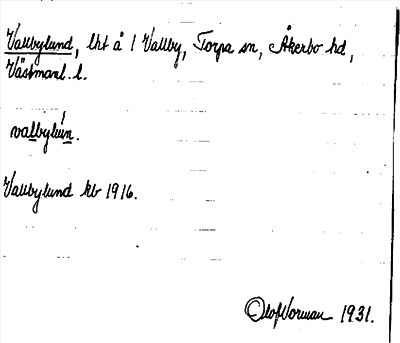 Vallbylund, lht å 1 Vallby, Torpa sn, Åkerbo hd,
Västmanl. l.
vallbylún.
Vallbylund kb 1916.
Olof Vorman 1931.